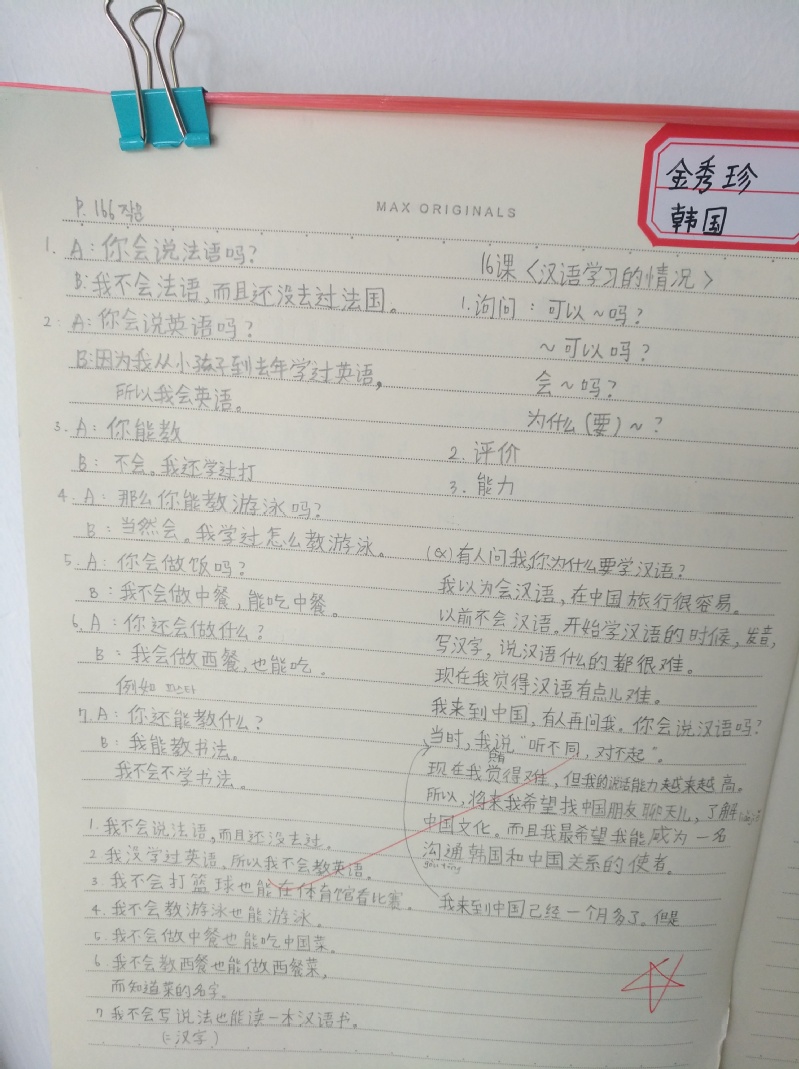 金秀珍
韩国
MAX ORIGINALS
P. 166 작문
1. A：你会说法语吗？
B：我不会法语，而且还没去过法国。
2. A：你会说英语吗？
B：因为我从小孩子到去年学过英语，
所以我会英语。
3. A：你能教
B：不会。我还学过打
4. A：那么你能教游泳吗？
B：当然会。我学过怎么教游泳。
5. A：你会做饭吗？
B：我不会做中餐，能吃中餐。
6. A：你还会做什么？
B：我会做西餐，也能吃。
例如 파스타
7. A：你还能教什么？
B：我能教书法。
我不会不学书法。
1. 我不会说法语，而且还没去过。
2 我没学过英语，所以我不会教英语。
3. 我不会打篮球也能在体育馆看比赛。
4. 我不会教游泳也能游泳。
5. 我不会做中餐也能吃中国菜。
6. 我不会教西餐也能做西餐菜，
而知道菜的名字。
7 我不会写说法也能读一本汉语书。
(=汉字)
16课〈汉语学习的情况〉
1. 询问：可以~吗？
~可以吗？
会~吗？
为什么(要)~？
2. 评价
3. 能力
有人问我，你为什么要学汉语？
我以为会汉语，在中国旅行很容易。
以前不会汉语。开始学汉语的时候，发音，
写汉字，说汉语什么的都很难。
现在我觉得汉语有点儿难。
我来到中国，有人再问我。你会说汉语吗？
当时，我说“听不同，对不起”。
现在我觉得难，但我的说话能力越来越高。
所以，将来我希望找中国朋友聊天儿，了解
中国文化。而且我最希望我能成为一名
沟通韩国和中国关系的使者。
gōu tōng
我来到中国已经一个月多了。但是